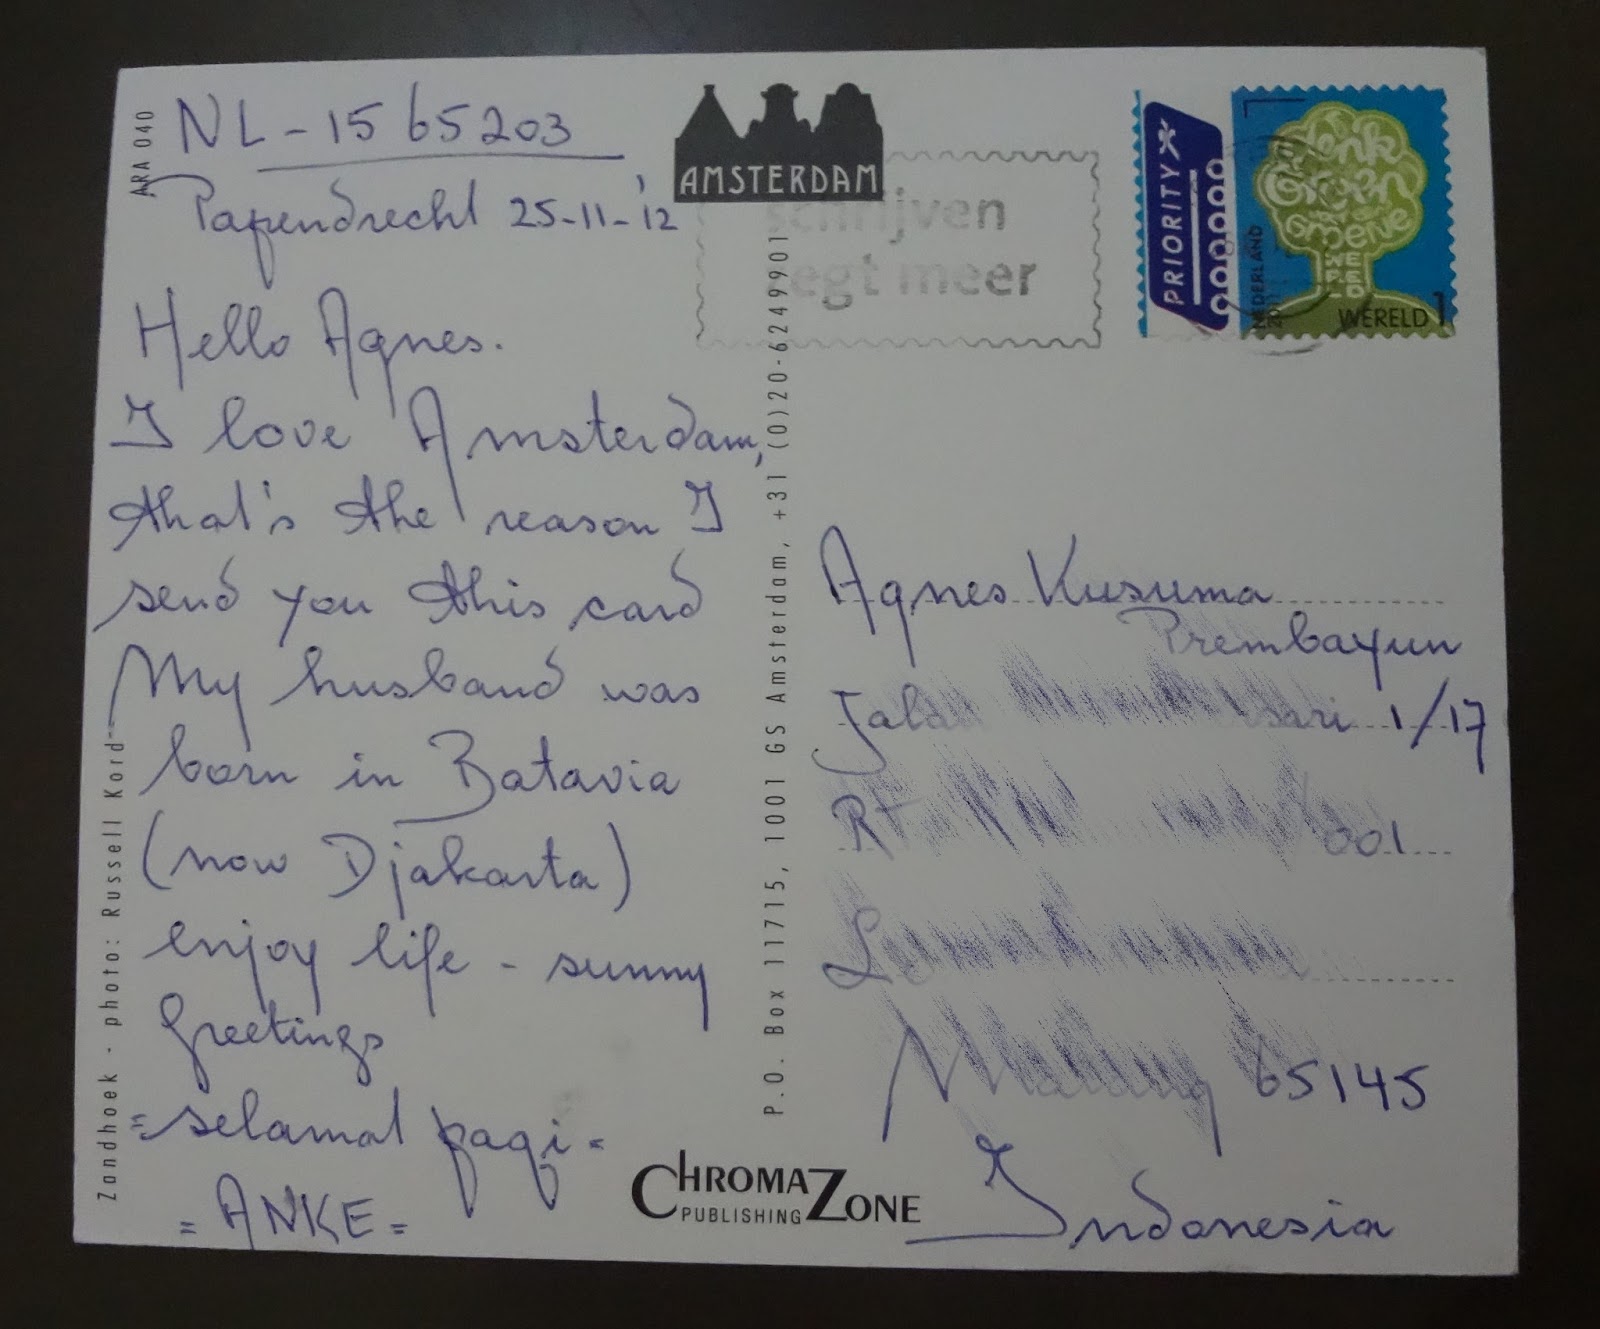 ARA 040
NL-1565203
Papendrecht 25-11-'12
Hello Agnes.
I love Amsterdam,
that's the reason I
send you this card
My husband was
born in Batavia
(now Djakarta)
enjoy life - sunny
Greetings
=selamat pagi=
=ANKE=
Zandhoek - photo: Russell Kord
AMSTERDAM
schrijven
zegt meer
P.O. Box 11715, 1001 GS Amsterdam, +31 (0)20-6249901
CHROMAZONE
PUBLISHING
PRIORITY
denk
Groen
Groene
NEDERLAND
2011
WERELD 1
Agnes Kusuma
Prembayun
Jalan sari 1/17
Rt 001
Malang 65145
Indonesia